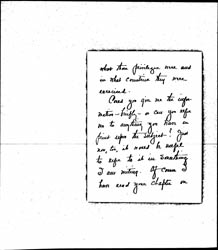 what their privileges were and
in what countries they were
exercised.
Could you give me the infor-
mation – briefly – or can you refer
me to anything you have in
print upon the subject? Just
now, too, it would be useful
to refer to it in something
I am writing. Of course I
have read your chapter on